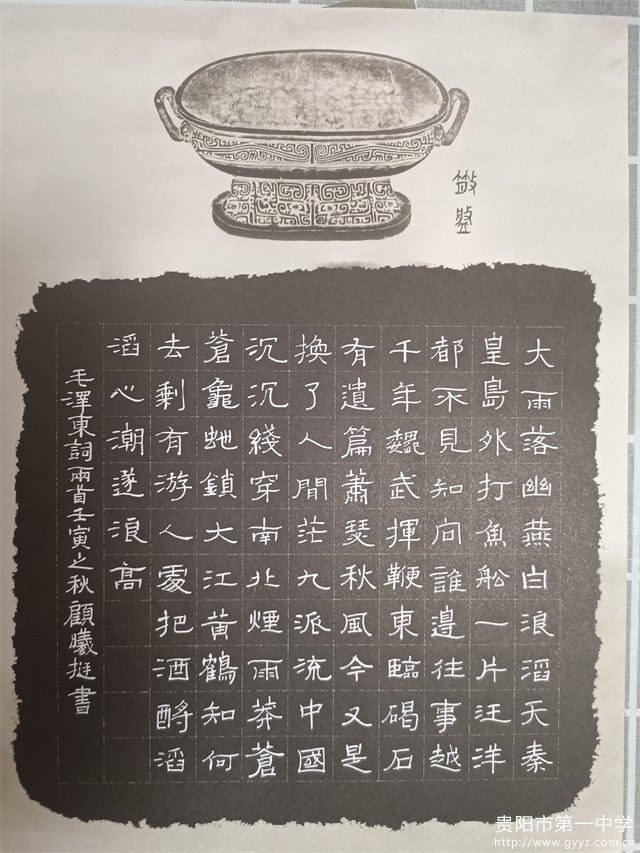 大雨落幽燕白浪滔天秦
皇島外打魚船一片汪洋
都不見知向誰邊往事越
千年魏武揮鞭東臨碣石
有遺篇蕭瑟秋風今又是
換了人間茫九派流中國
沉沉綫穿南北煙雨莽蒼
蒼龜虵鎖大江黃鶴知何
去剩有游人處把酒酹滔
滔心潮逐浪高
毛澤東詞兩首壬寅之秋顧曦挺書
贵阳市第一中学
http://www.gyyz.com.cn